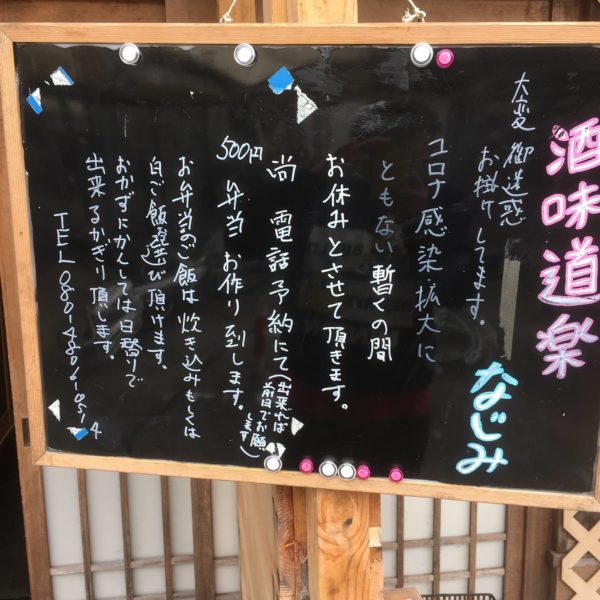 酒味道楽
なじみ
大変御迷惑
お掛けしてます。
コロナ感染拡大に
ともない暫くの間
お休みとさせて頂きます。
尚電話予約にて(出来れば前日でお願します)
500円弁当お作り到します。
お弁当のご飯は炊き込みもしくは
白ご飯お選び頂けます。
おかずにかんしては日替りで
出来るかぎり頂します。